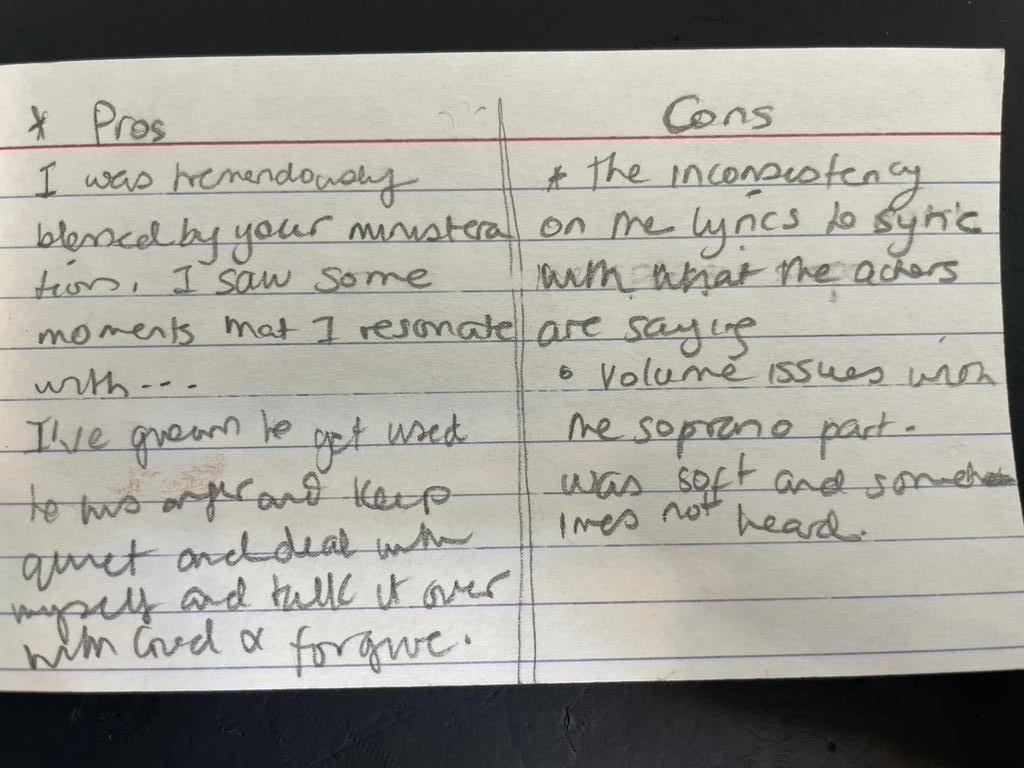 * Pros
I was tremendously
blessed by your ministera
tion, I saw some
moments that I resonate
with ---
I've grown to get used
to his anger and keep
quiet and deal with
myself and talk it over
with God & forgive.
Cons
* the inconsistency
on the lyrics to sync
with what the actors
are saying
• Volume issues with
the soprano part.
was soft and somet
imes not heard.